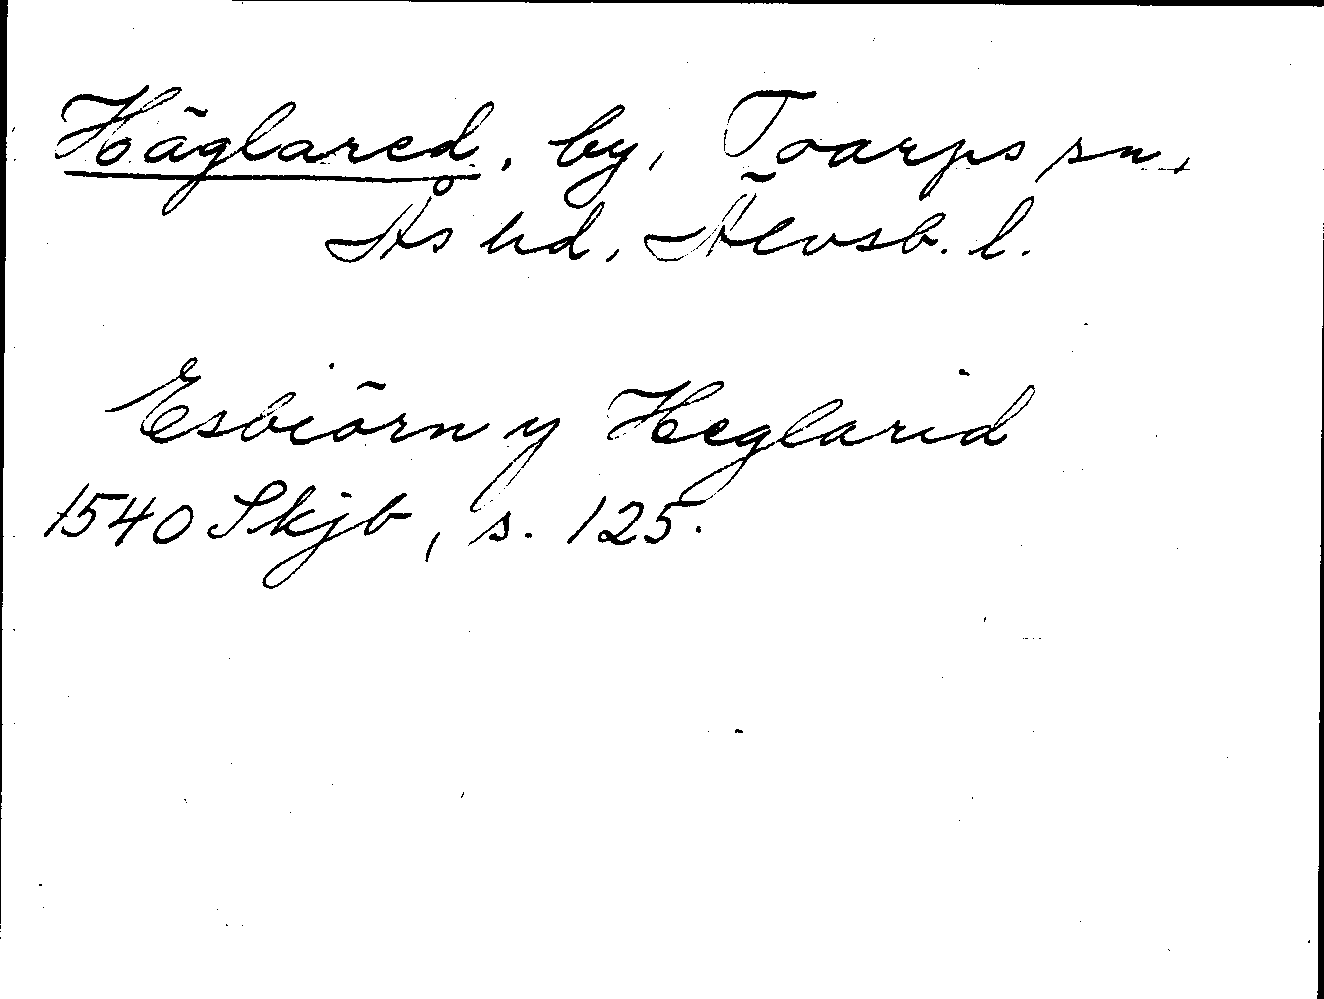 Häglared, by, Toarps sn,
Ås hd, Älvsb. l.
Esbiörn y Heglarid
1540 Skjb, s. 125.